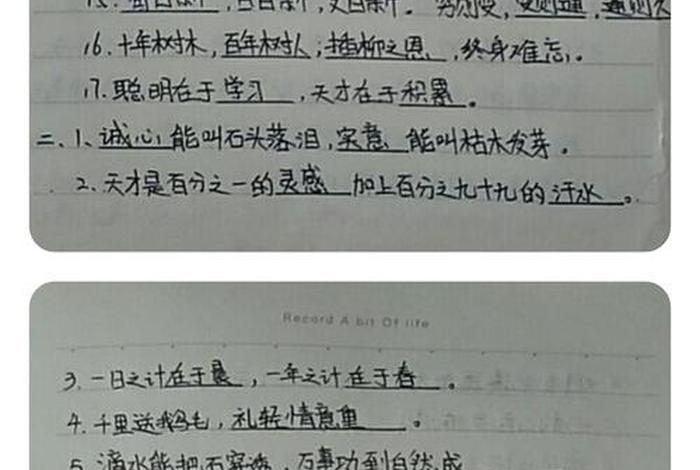 15. 苟日新,日日新,又日新。 穷则变,变则通,通则久
16. 十年树木,百年树人;插柳之恩,终身难忘。
17. 聪明在于学习,天才在于积累。
二、1、诚心能叫石头落泪,实意能叫枯木发芽。
2、天才是百分之一的灵感 加上百分之九十九的汗水。
Record A bit Of life
3. 一日之计在于晨,一年之计在于春。
4. 千里送鹅毛,礼轻情意重。
5. 滴水能把石穿透,万事功到自然成